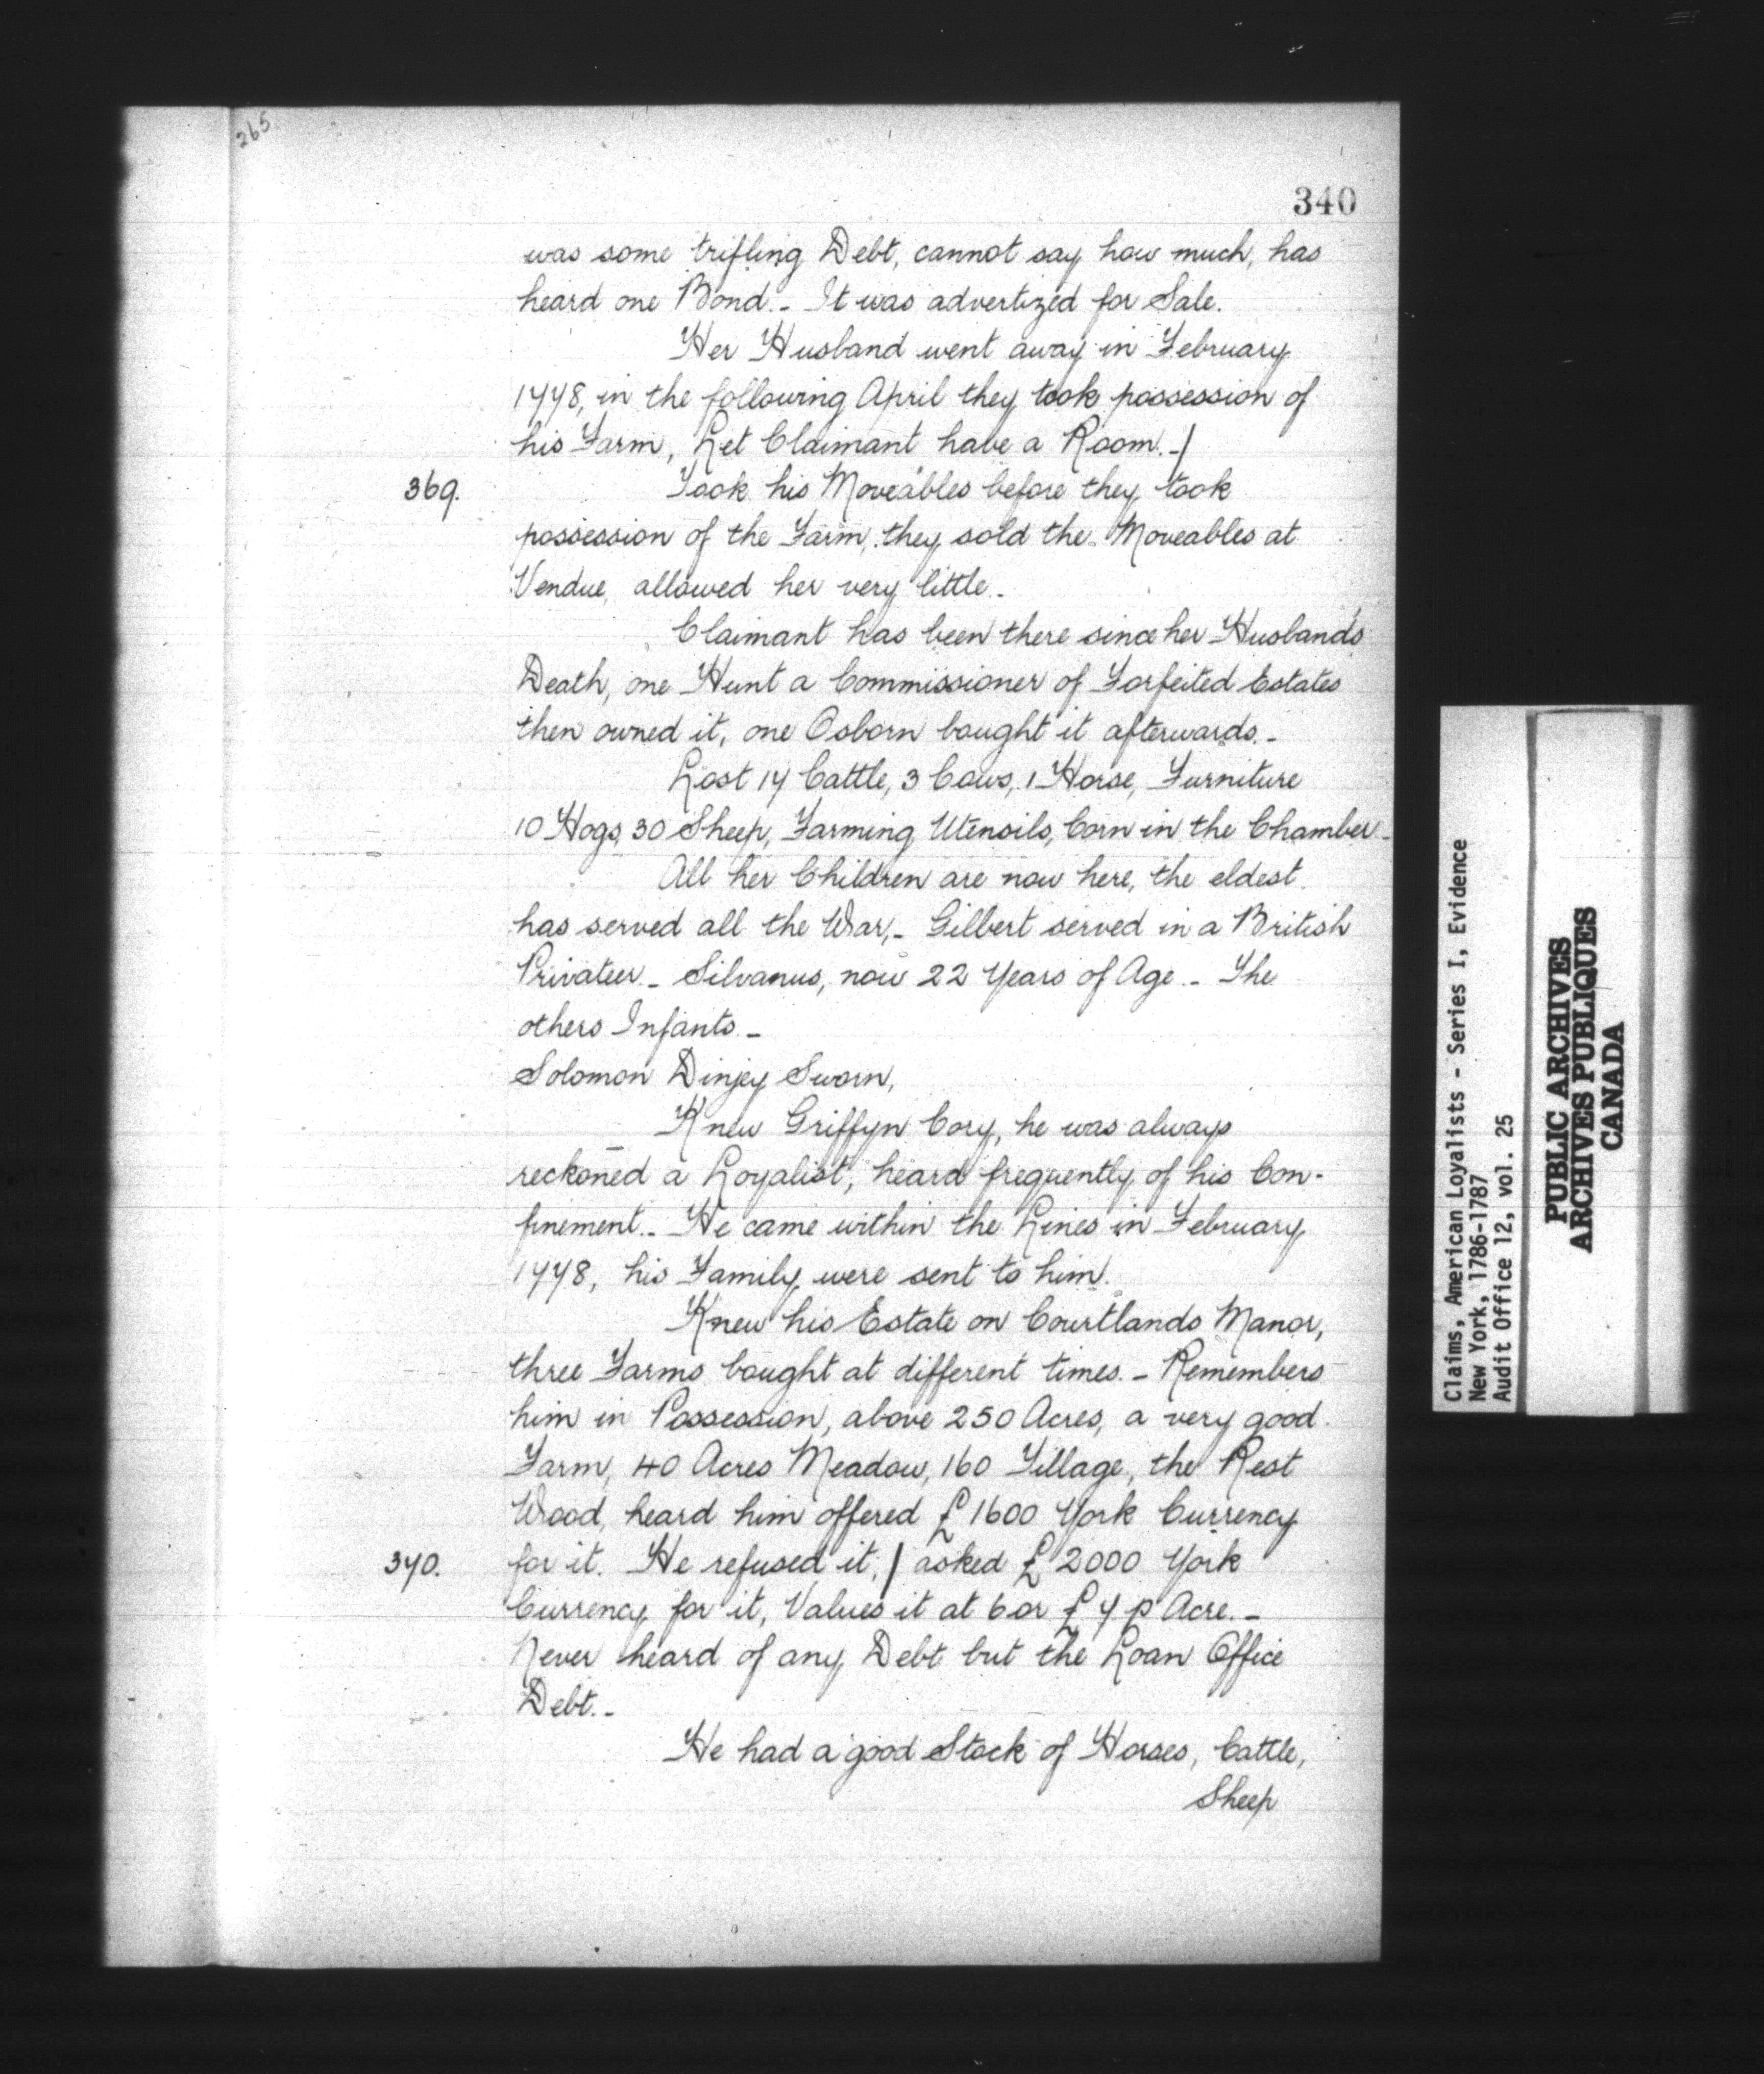 265
340
was some trifling Debt, cannot say how much, has
heard one Bond. - It was advertized for Sale.
Her Husband went away in February
1778, in the following April they took possession of
his Farm, Let Claimant have a Room. - /
369.
Took his Moveables before they took
possession of the Farm, they sold the Moveables at
Vendue, allowed her very little. -
Claimant has been there since her Husband's
Death, one Hunt a Commissioner of Forfeited Estates
then owned it, one Osborn bought it afterwards. -
Lost 17 Cattle, 3 Cows, 1 Horse, Furniture
10 Hogs, 30 Sheep, Farming Utensils, Corn in the Chamber -
All her Children are now here, the eldest
has served all the War, - Gilbert served in a British
Privateer - Silvanus, now 22 Years of Age. - The
others Infants. -
Solomon Dinjey Sworn,
Knew Griffyn Cory, he was always
reckoned a Loyalist, heard frequently of his Con-
finement. - He came within the Lines in February
1778, his Family were sent to him.
Knew his Estate on Courtlands Manor,
three Farms bought at different times. - Remembers
him in Possession, above 250 Acres, a very good
Farm, 40 Acres Meadow, 160 Tillage, the Rest
Wood, heard him offered £1600 York Currency
370.
for it. He refused it, / asked £2000 York
Currency for it, Values it at 6 or £7 p Acre. -
Never heard of any Debt but the Loan Office
Debt. -
He had a good Stock of Horses, Cattle,
Sheep
Claims, American Loyalists - Series I, Evidence
New York, 1786-1787
Audit Office 12, vol. 25
PUBLIC ARCHIVES
ARCHIVES PUBLIQUES
CANADA